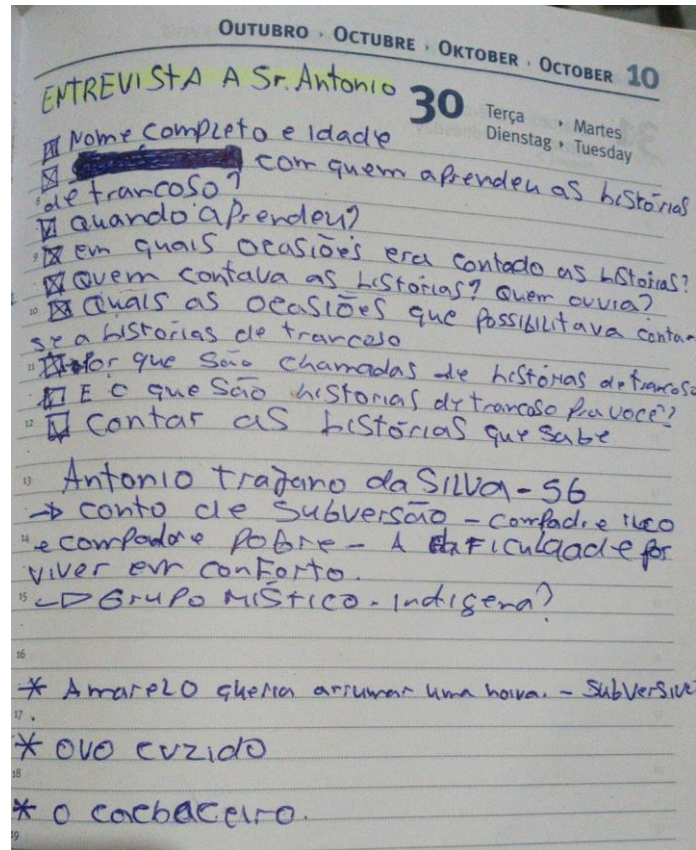 OUTUBRO · OCTUBRE · OKTOBER · OCTOBER 10
ENTREVISTA A Sr. Antonio
30 Terça · Martes
Dienstag · Tuesday
Nome completo e idade
com quem aprendeu as histórias
8 de trancoso?
quando aprendeu?
9 em quais ocasiões era contado as histoias?
Quem contava as histórias? Quem ouvia?
10 Quais as ocasiões que possibilitava contar-
se a historias de trancoso
11 Por que são chamadas de histórias de trancoso
E o que são historias de trancoso pra você?
12 Contar as histórias que sabe
13 Antonio trajano da Silva - 56
→ conto de subversão - compadre rico
14 e compadre pobre - A por
viver em conforto.
15 → Grupo místico - indigena?
16
* Amarelo queria arrumar uma noiva. - Subversive
17
* ovo cuzido
18
* o cachaceiro.
19